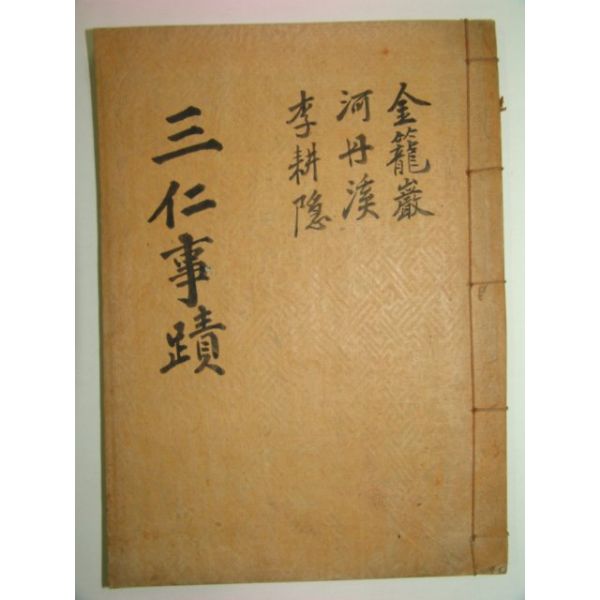 金籠巖
河丹溪
李耕隠
三仁事蹟